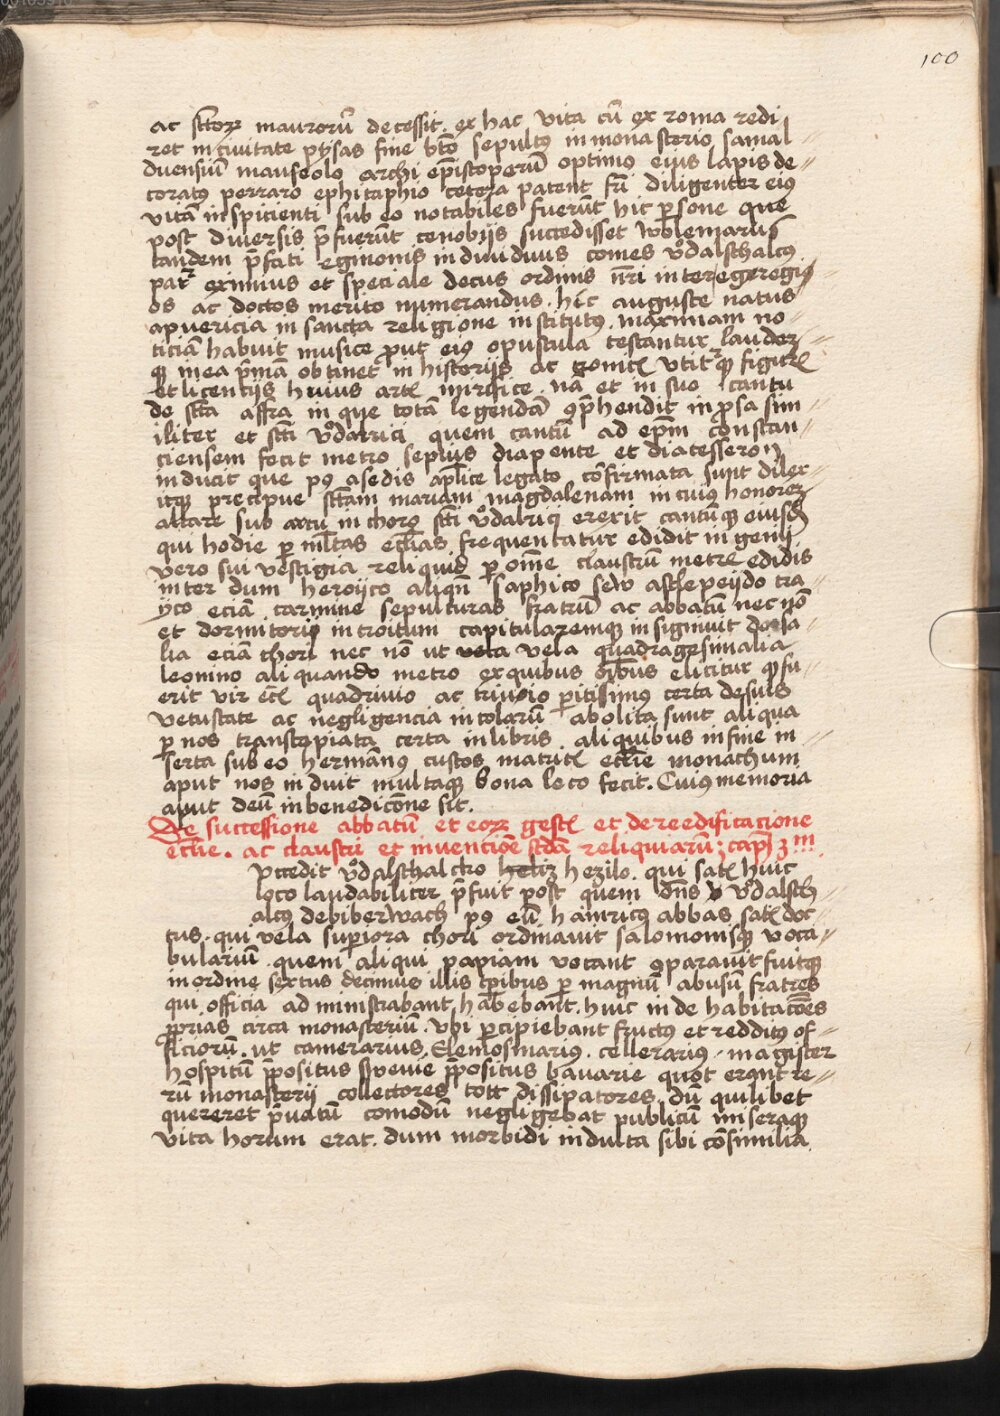 100
ac sctoꝝ maurorū decessit. ex hac vita cū ex roma redi
ret in ciuitate pysas fine bt̄o sepultꝰ in monasterio samal
duensiū mauseolo archi ep̄istoperū optimus eiꝰ lapis de
coratꝰ perraro ephitaphio cetera patent fm̄ diligenter eiꝯ
vitā inspicienti sub eo notabiles fuerūt hic ꝑsone que
post diuersis p̄fuerūt cenobijs successisset
tandem p̄fati eginonis indiuiduus comes vͦdalschalcꝰ
patꝛ eximius et speciale decus ordinis n̄ri inter egregi
os ac doctos merito numerandus. hic auguste natus
apuericia in sancta religione institutꝰ. maximam no
ticiā habuit musice ꝓut eiꝰ opuscula testantur laudeꝫ
qꝫ mea p̄mā obtinet in historijs ac vtitꝛqꝫ figurꝭ
et licentijs huius artꝭ mirifice. nā et in suo cantu
de sctā affra in que totā legendā ꝯp̄hendit in ꝓsa sim
iliter et scti vͦdalrici quem cantū ad ep̄m constan
ciensem fecit metro sepius diapente et diatesseron
inducit que pꝰ a sedis apl̄ice legato cōfirmata sunt dilex
itqꝫ precipue sctam mariam magdalenam in cuiꝰ honoreꝫ
altare sub arcu in choro scti vͦdalrici erexit cantūqꝫ eiusdē
qui hodie ꝑ ml̄tas ecc̄ias frequentatur edidit ingenij
vero sui vestigia reliquid ꝑ om̄e claustrū metrꝭ edidis
inter dum heroyco aliqn̄ saphico seu asclepeydo tra
yco eciā carmine sepulturas fratrū ac abbatū nec nō
et dormitorij introitum capitularemqꝫ insigniuit dorsa
lia eciā chori nec nō ut vela vela quadragesimalia
leonino aliquando metro ex quibus oībus elicitur ꝙ fu
erit vir ect̄ quadriuio ac triuio ꝑitissimus certa desuis
vetustate ac negligencia incolarū abolita sunt aliqua
ꝑ nos transcopiata certa in libris aliquibus in fine in
serta sub eo hermānꝰ custos matricꝭ ecc̄lie monachum
aput nos induit multaqꝫ bona loco fecit. Cuius memoria
aput deū in benedicōne sit.
De successione abbatū et eoꝝ gestꝭ et de reedificacione
ecc̄lie. ac claustri et inuencioē sctā reliquiarū; capꝫ 3m̄
vccedit vͦdalschalcho heliz hezilo. qui satꝭ huic
loco laudabiliter p̄fuit post quem dn̄s v vͦdalsch
alcꝰ de biberwach pꝰ eū hainricꝰ abbas satꝭ doc
tus. qui vela superiora chori ordinauit salomonisqꝫ voca
bularium. quem aliqui papiam vocant ꝯparauit fuitqꝫ
in ordine sextus decimus illis tꝑibus ꝑ magnū abusū fratres
qui officia ad ministrabant habebant. huic inde habitacōes
ꝓprias circa monasteriū. vbi ꝑcipiebant fructꝰ et redditꝰ of
ficiorū. ut camerarius. Elemosinariꝰ. cellerariꝰ. magister
hospitū p̄positus swevie p̄positus bauarie quot erant re
rū monasterij collectores tott dissipatores. dū quilibet
quereret p̄uatū comodū negligebat publicū miseraqꝫ
vita horum erat. dum morbidi indulta sibi cōsimilia